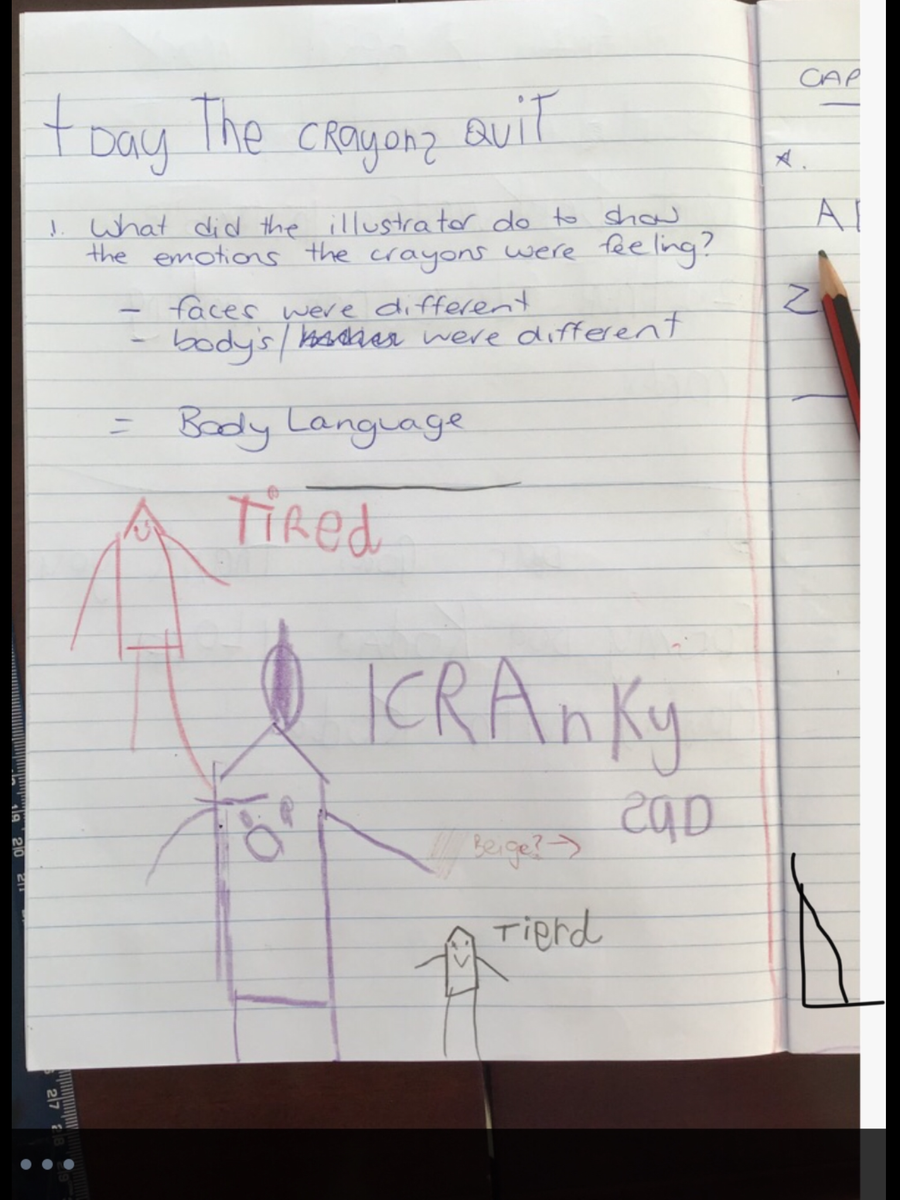 t Day The crayons QuiT
1. What did the illustrator do to show
the emotions the crayons were feeling?
- faces were different
- body's/ were different
= Body Language
TiRed
KCRAnKy
saD
Beige? →
Tierd
CAP
*.
A
2